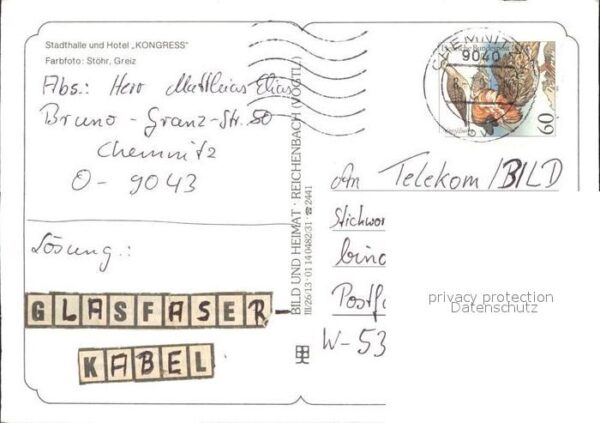 Stadthalle und Hotel „KONGRESS"
Farbfoto: Stöhr, Greiz
Abs.: Herr Matthias Elias
Bruno-Granz-Str. 50
Chemnitz
O-9043
Lösung:
GLASFASER-
KABEL
BILD UND HEIMAT · REICHENBACH (VOGTL)
III/26/13 · 01 14 0482/31 · ☎ 2441
CHEMNITZ
9040
Deutsche Bundespost
60
An Telekom/BILD
Stichwor
bino
Postfa
W-53
privacy protection
Datenschutz